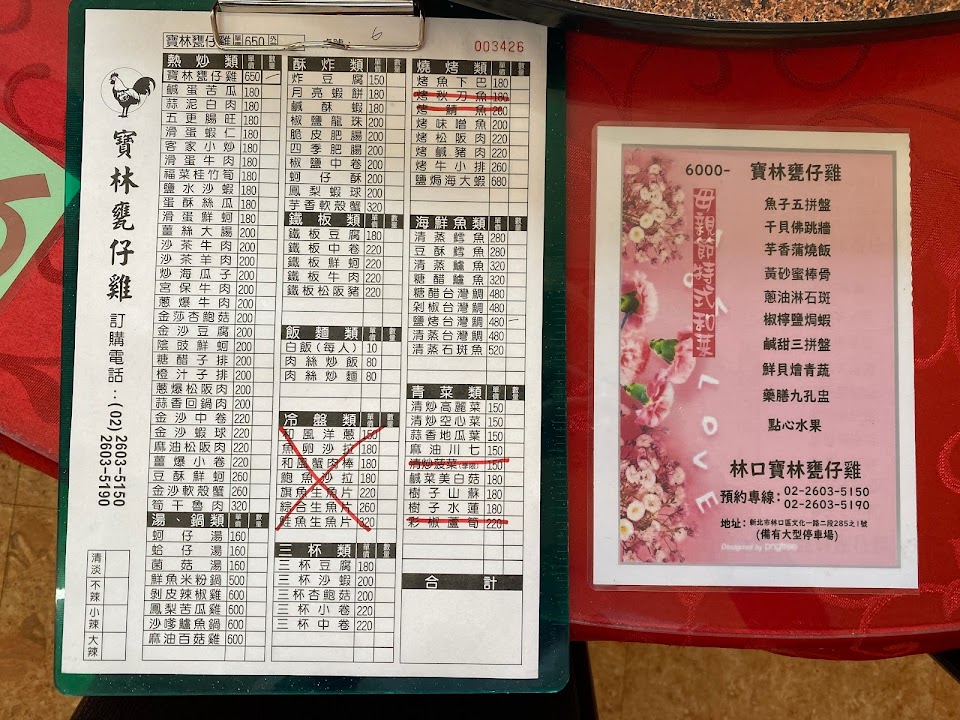 寶林甕仔雞 單價 650 外
桌號: 6
003426
寶林甕仔雞
訂購電話:(02)2603-5150
2603-5190
熱炒類 單價 數量
寶林甕仔雞 650
鹹蛋苦瓜 180
蒜泥白肉 180
五更腸旺 180
滑蛋蝦仁 180
客家小炒 180
滑蛋牛肉 180
福菜桂竹筍 180
鹽水沙蝦 180
蛋酥絲瓜 180
滑蛋鮮蚵 180
薑絲大腸 200
沙茶牛肉 200
沙茶羊肉 200
炒海瓜子 200
宮保牛肉 200
蔥爆牛肉 200
金莎杏鮑菇 200
金沙豆腐 200
蔭豉鮮蚵 200
糖醋子排 200
橙汁子排 200
蔥爆松阪肉 220
蒜香回鍋肉 200
金沙中卷 220
金沙蝦球 220
麻油松阪肉 220
薑爆小卷 220
豆酥鮮蚵 260
金沙軟殼蟹 260
筍干魯肉 320
湯、鍋類 單價 數量
蚵仔湯 160
蛤仔湯 160
菌菇湯 160
鮮魚米粉鍋 500
剝皮辣椒雞 600
鳳梨苦瓜雞 600
沙嗲鱸魚鍋 600
麻油百菇雞 600
清淡
不辣
小辣
大辣
酥炸類 單價 數量
炸豆腐 150
月亮蝦餅 180
鹹酥蝦 180
椒鹽龍珠 200
脆皮肥腸 200
四季肥腸 200
椒鹽中卷 200
蚵仔酥 200
鳳梨蝦球 200
芋香軟殼蟹 320
鐵板類 單價 數量
鐵板豆腐 180
鐵板中卷 220
鐵板鮮蚵 220
鐵板牛肉 220
鐵板松阪豬 220
飯麵類 單價 數量
白飯(每人) 10
肉絲炒飯 80
肉絲炒麵 80
冷盤類 單價 數量
和風洋蔥 150
魚卵沙拉 180
和風蟹肉棒 180
鮑魚沙拉 180
旗魚生魚片 220
綜合生魚片 260
鮭魚生魚片 320
三杯類 單價 數量
三杯豆腐 180
三杯沙蝦 200
三杯杏鮑菇 200
三杯小卷 220
三杯中卷 220
燒烤類 單價 數量
烤魚下巴 180
烤秋刀魚 180
烤鯖魚 200
烤味噌魚 200
烤松阪肉 220
烤鹹豬肉 220
烤牛小排 260
鹽焗海大蝦 680
海鮮魚類 單價 數量
清蒸鱈魚 280
豆酥鱈魚 280
清蒸鱸魚 320
糖醋鱸魚 320
糖醋台灣鯛 480
剁椒台灣鯛 480
鹽烤台灣鯛 480
清蒸台灣鯛 480
清蒸石斑魚 520
青菜類 單價 數量
清炒高麗菜 150
清炒空心菜 150
蒜香地瓜葉 150
麻油川七 150
清炒菠菜(季節) 150
鹹菜美白菇 180
樹子山蘇 180
樹子水蓮 180
彩椒蘆筍 220
合計
6000- 寶林甕仔雞
母親節特式和菜
魚子五拼盤
干貝佛跳牆
芋香蒲燒飯
黃砂蜜棒骨
蔥油淋石斑
椒檸鹽焗蝦
鹹甜三拼盤
鮮貝燴青蔬
藥膳九孔盅
點心水果
LOVE
林口寶林甕仔雞
預約專線:02-2603-5150
02-2603-5190
地址: 新北市林口區文化一路二段285之1號
(備有大型停車場)
Designed by pngtree